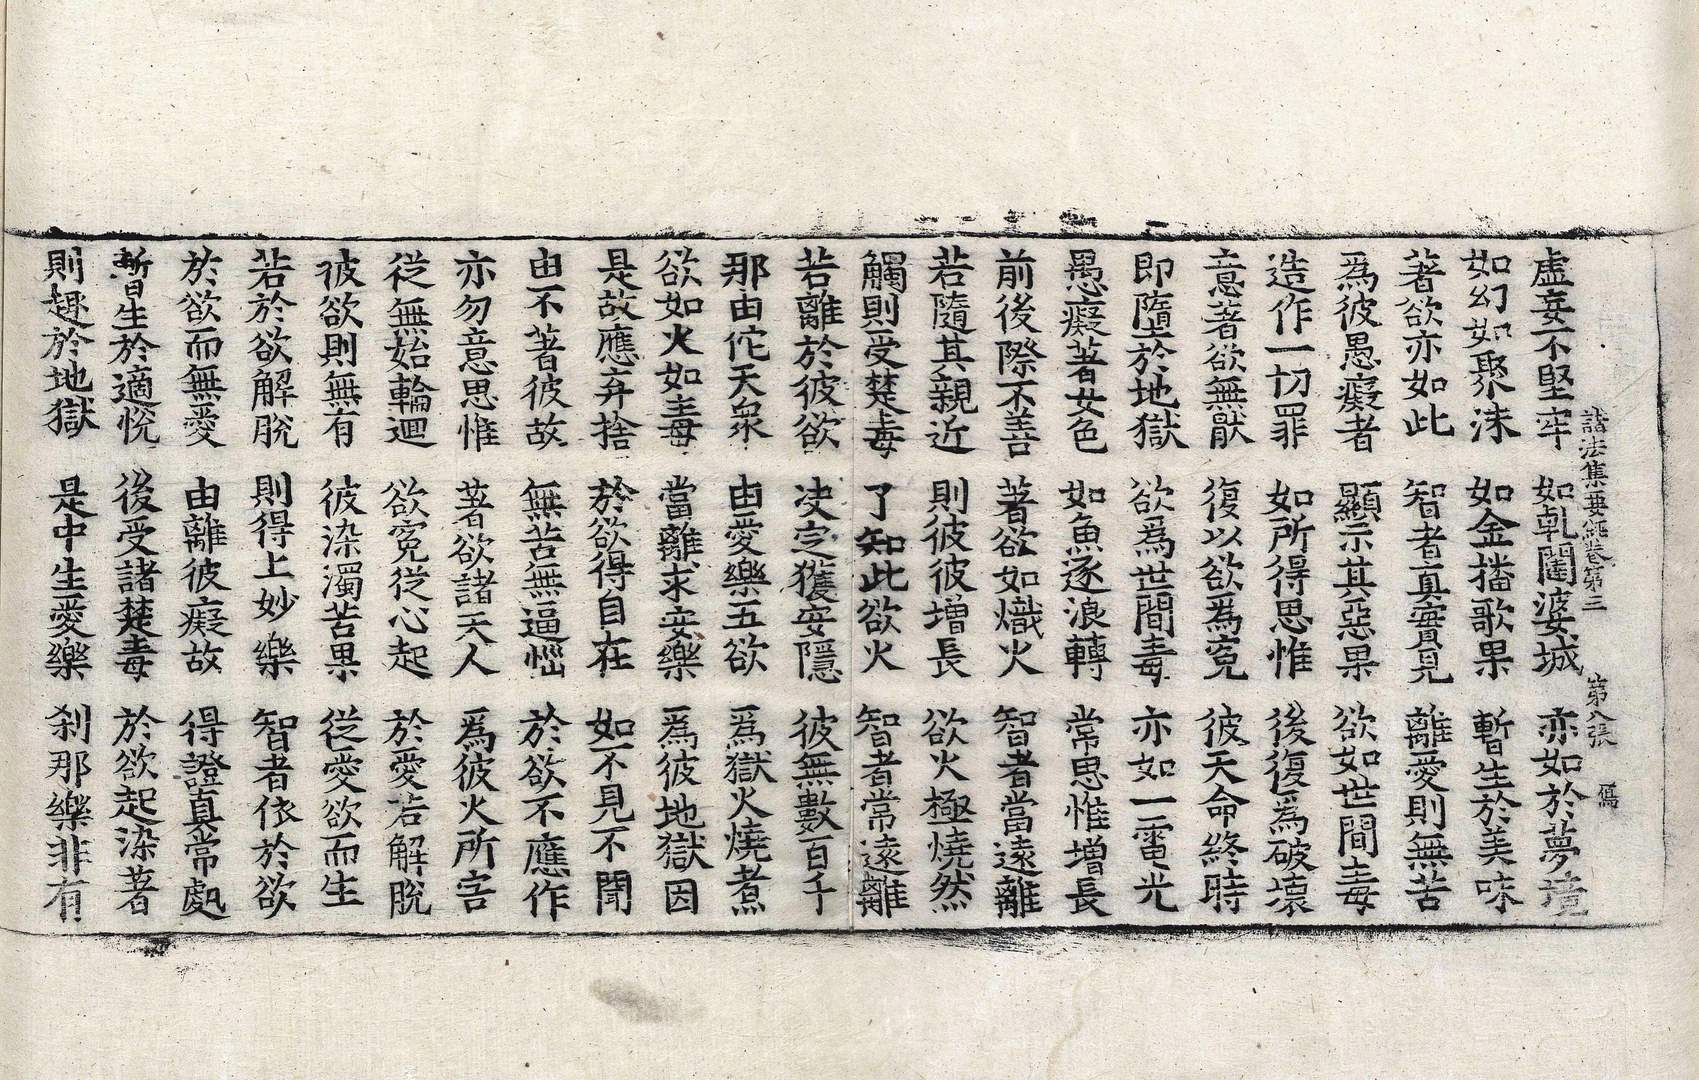 諸法集要經卷第三 第八張 傿
虛妄不堅牢 如乹闥婆城 亦如於夢境
如幻如聚沫 如金播歌果 暫生於美味
著欲亦如此 智者真實見 離愛則無苦
爲彼愚癡者 顯示其惡果 欲如世間毒
造作一切罪 如所得思惟 後復爲破壞
意著欲無猒 復以欲爲寃 彼天命終時
即墮於地獄 欲爲世間毒 亦如一電光
愚癡著女色 如魚逐浪轉 常思惟增長
前後際不善 著欲如熾火 智者當遠離
若隨其親近 則彼彼增長 欲火極燒然
觸則受楚毒 了知此欲火 智者常遠離
若離於彼欲 决定獲安隱 彼無數百千
那由佗天衆 由愛樂五欲 爲獄火燒煮
欲如火如毒 當離求安樂 爲彼地獄因
是故應弃捨 於欲得自在 如不見不聞
由不著彼故 無苦無逼惱 於欲不應作
亦勿意思惟 著欲諸天人 爲彼火所害
從無始輪迴 欲寃從心起 於愛若解脫
彼欲則無有 彼染濁苦果 從愛欲而生
若於欲解脫 則得上妙樂 智者依於欲
於欲而無愛 由離彼癡故 得證真常處
暫生於適悅 後受諸楚毒 於欲起染著
則趣於地獄 是中生愛樂 刹那樂非有